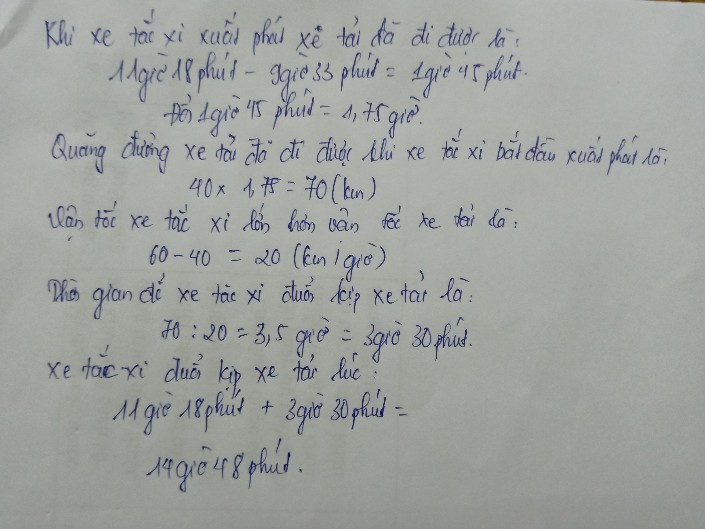 Khi xe tắc xi xuất phát xe tải đã đi được là:
11giờ 18 phút - 9giờ 33 phút = 1giờ 45 phút.
Đổi 1giờ 45 phút = 1,75 giờ.
Quãng đường xe tải đã đi được khi xe tắc xi bắt đầu xuất phát là:
40 x 1,75 = 70 (km)
Vận tốc xe tắc xi lớn hơn vận tốc xe tải là:
60 - 40 = 20 (km / giờ)
Thời gian để xe tắc xi đuổi kịp xe tải là:
70 : 20 = 3,5 giờ = 3giờ 30 phút.
xe tắc xi đuổi kịp xe tải lúc:
11giờ 18 phút + 3giờ 30 phút =
14giờ 48 phút.